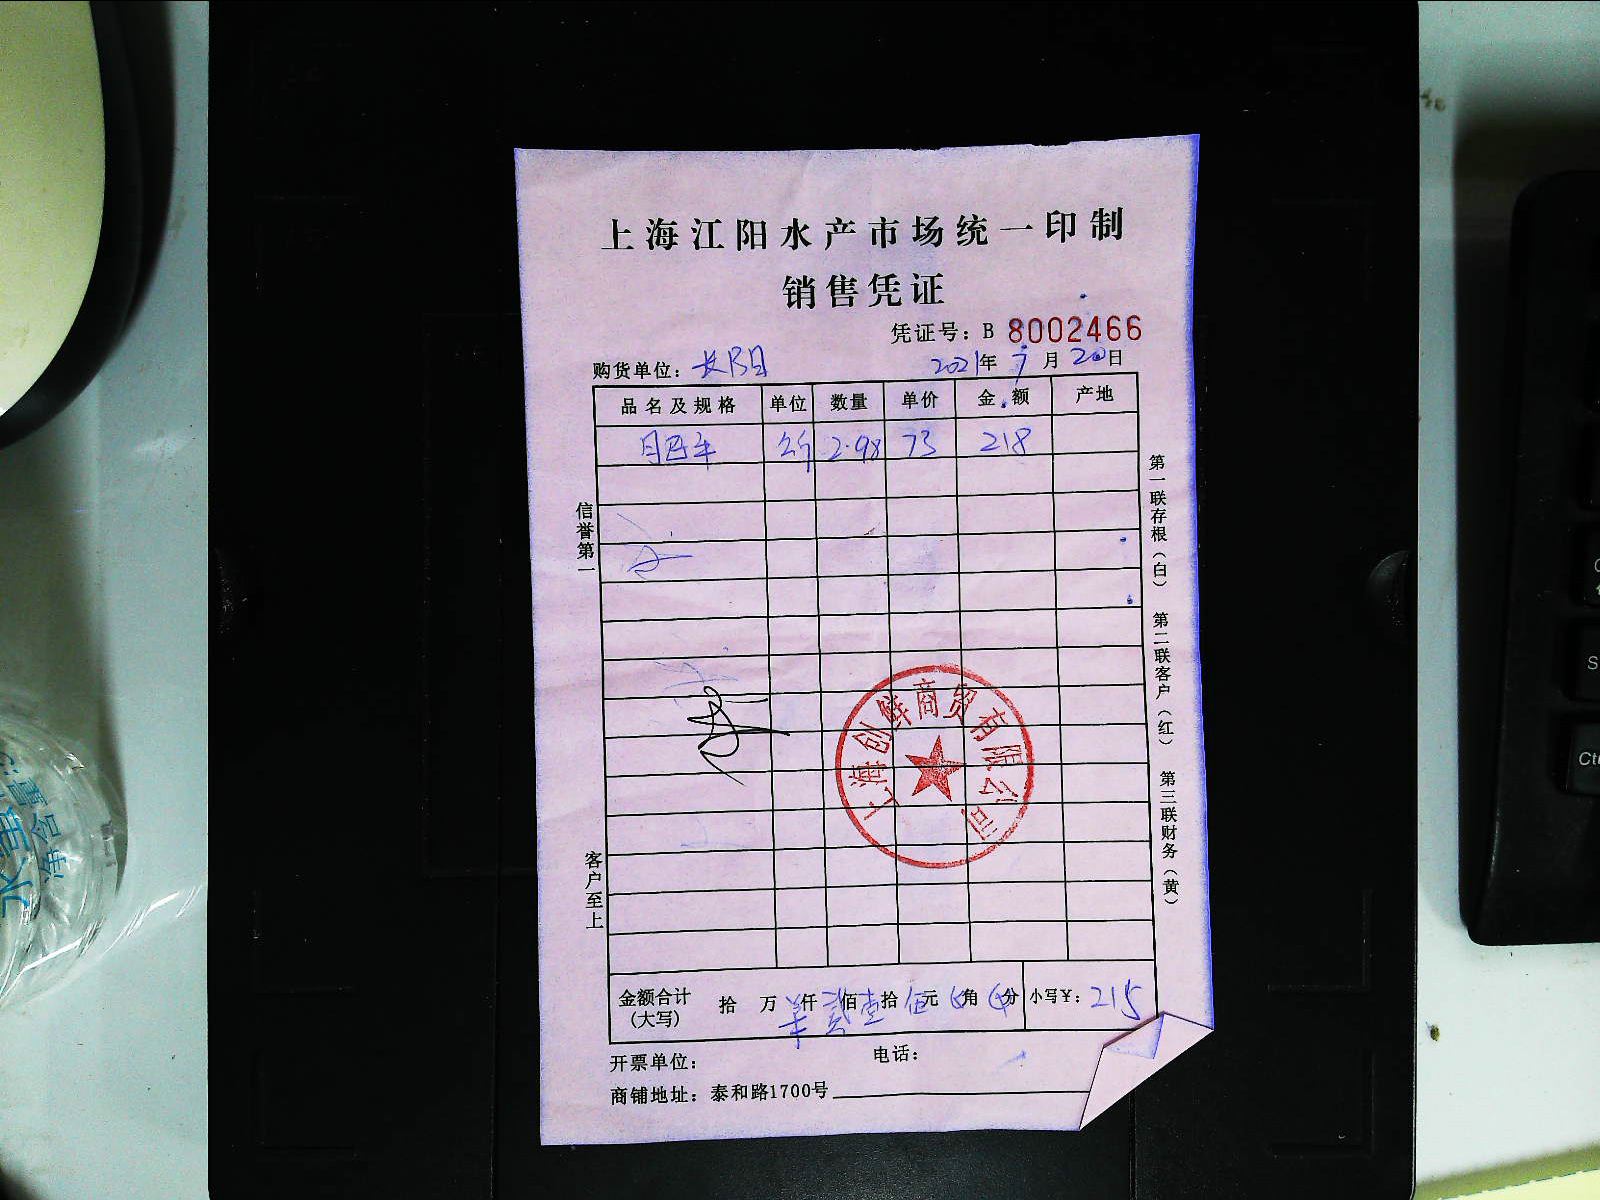 上海江阳水产市场统一印制
销售凭证
凭证号：B 8002466
购货单位：长阳 2021年 7月 20日
品名及规格 单位 数量 单价 金额 产地
2.98 73 218
信誉第一
客户至上
第一联存根（白） 第二联客户（红） 第三联财务（黄）
上海创鲜商贸有限公司
金额合计 拾 万 仟 贰佰 壹拾 伍元 角 分 小写¥：215
(大写)
开票单位： 电话：
商铺地址：泰和路1700号
净含量